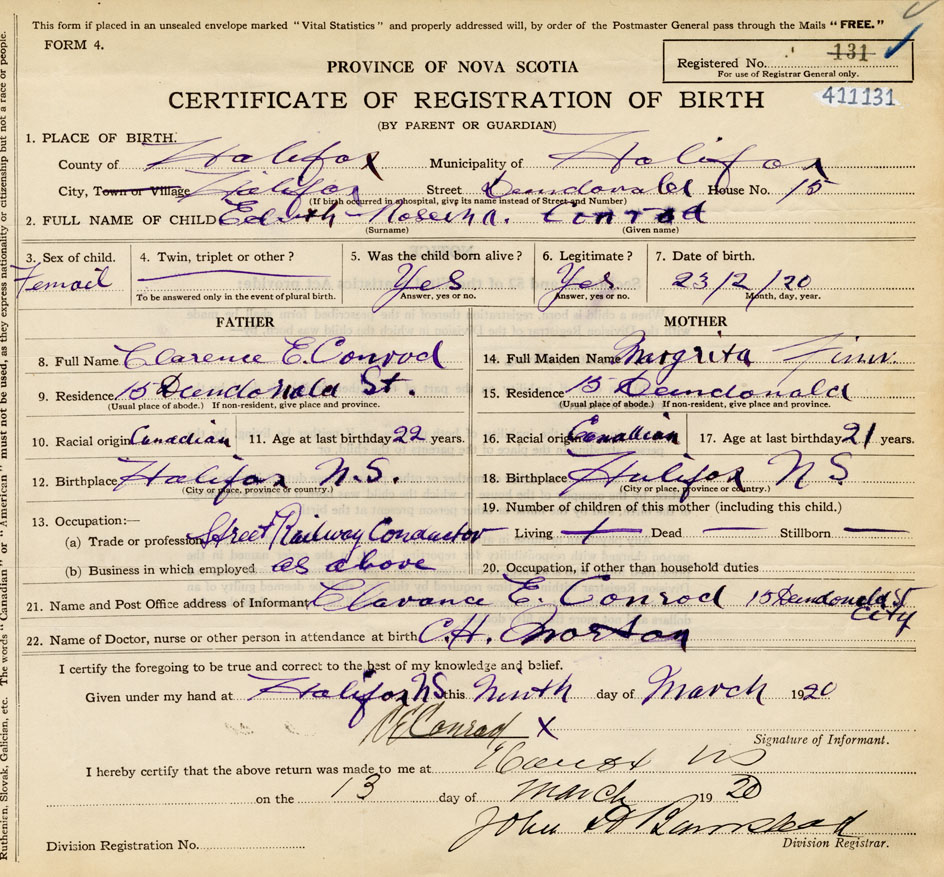 This form if placed in an unsealed envelope marked "Vital Statistics" and properly addressed will, by order of the Postmaster General pass through the Mails "FREE."
FORM 4.
Registered No. 131
For use of Registrar General only.
PROVINCE OF NOVA SCOTIA
411131
CERTIFICATE OF REGISTRATION OF BIRTH
(BY PARENT OR GUARDIAN)
1. PLACE OF BIRTH.
County of Halifax Municipality of Halifax
City, Town or Village Halifax Street Dundonald House No. 15
(If birth occurred in hospital, give its name instead of Street and Number)
2. FULL NAME OF CHILD Edith Roseina. Conrod
(Surname) (Given name)
3. Sex of child. 4. Twin, triplet or other? 5. Was the child born alive? 6. Legitimate? 7. Date of birth.
Femail Yes Yes 23/2/20
To be answered only in the event of plural birth. Answer, yes or no. Answer, yes or no. Month, day, year.
FATHER MOTHER
8. Full Name Clarence E. Conrod 14. Full Maiden Name Margrita
9. Residence 15 Dundonald St. 15. Residence 15 Dundonald
(Usual place of abode.) If non-resident, give place and province. (Usual place of abode.) If non-resident, give place and province.
10. Racial origin Canadian 11. Age at last birthday 22 years. 16. Racial origin Canadian 17. Age at last birthday 21 years.
12. Birthplace Halifax N.S. 18. Birthplace Halifax N S
(City or place, province or country.) (City or place, province or country.)
13. Occupation:— 19. Number of children of this mother (including this child.)
(a) Trade or profession Street Railway Conductor Living 1 Dead — Stillborn —
(b) Business in which employed as above 20. Occupation, if other than household duties
21. Name and Post Office address of Informant Clarance E. Conrod 15 Dundonald St City
22. Name of Doctor, nurse or other person in attendance at birth C.H. Morton
I certify the foregoing to be true and correct to the best of my knowledge and belief.
Given under my hand at Halifax NS this Ninth day of March 1920
C E Conrod X
Signature of Informant.
I hereby certify that the above return was made to me at Halifax NS
on the 13 day of March 1920
John A Barnstead
Division Registration No. Division Registrar.
Ruthenien, Slovak, Galician, etc. The words "Canadian" or "American" must not be used, as they express nationality or citizenship but not a race or people.